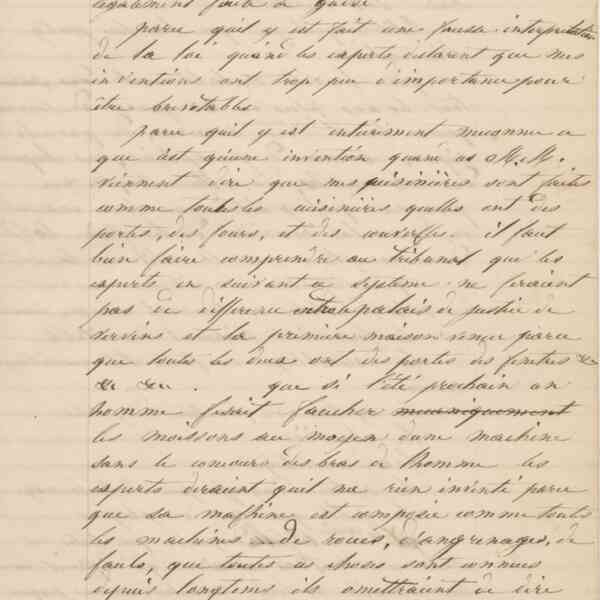 également faite à Guise
parce quil y est fait une fausse interpretation
de la loi quand les experts déclarent que mes
inventions ont trop peu d'importance pour
être brevetables
parce quil y est entièrement méconnu ce
que c'est qu'une invention quand ces M. M.
viennent dire que mes cuisinières sont faites
comme toutes les cuisinières quelles ont des
portes, des fours, et des couvercles. il faut
bien faire comprendre au tribunal que les
experts en suivant ce système ne feraient
pas de différence entre le palais de justice de
Vervins et la première maison venue parce
que toutes les deux ont des portes des fenêtres &c
&c &c. que si l'été prochain un
homme ferait faucher mecaniquement
les moissons au moyen d'une machine
sans le concours des bras de l'homme les
experts diraient quil na rien inventé parce
que sa machine est composée comme toutes
les machines de roues, d'angrenages, de
faulx, que toutes ces choses sont connues
depuis longtems ils omettraient de dire